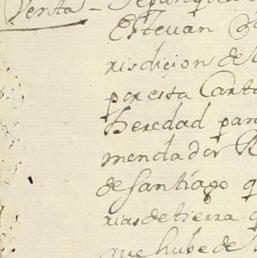 Venta - Sepan quan
Estevan
risdiçion de
por esta Carta
heredad para
mendador
de Santiago q
rias de tierra q
que hube de